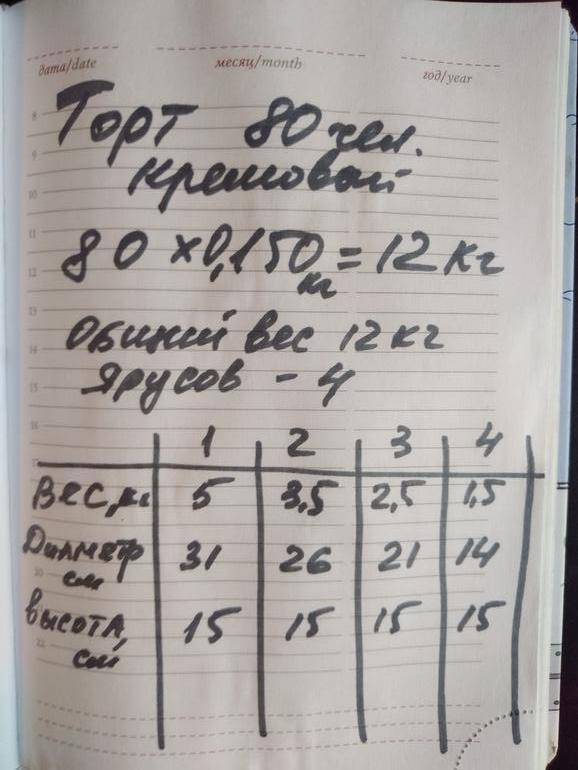 дата/date месяц/month год/year
Торт 80 чел.
кремовый
80 x 0,150 кг = 12 кг
Общий вес 12 кг
Ярусов - 4
1 2 3 4
Вес, кг 5 3,5 2,5 1,5
Диаметр см 31 26 21 14
Высота, см 15 15 15 15